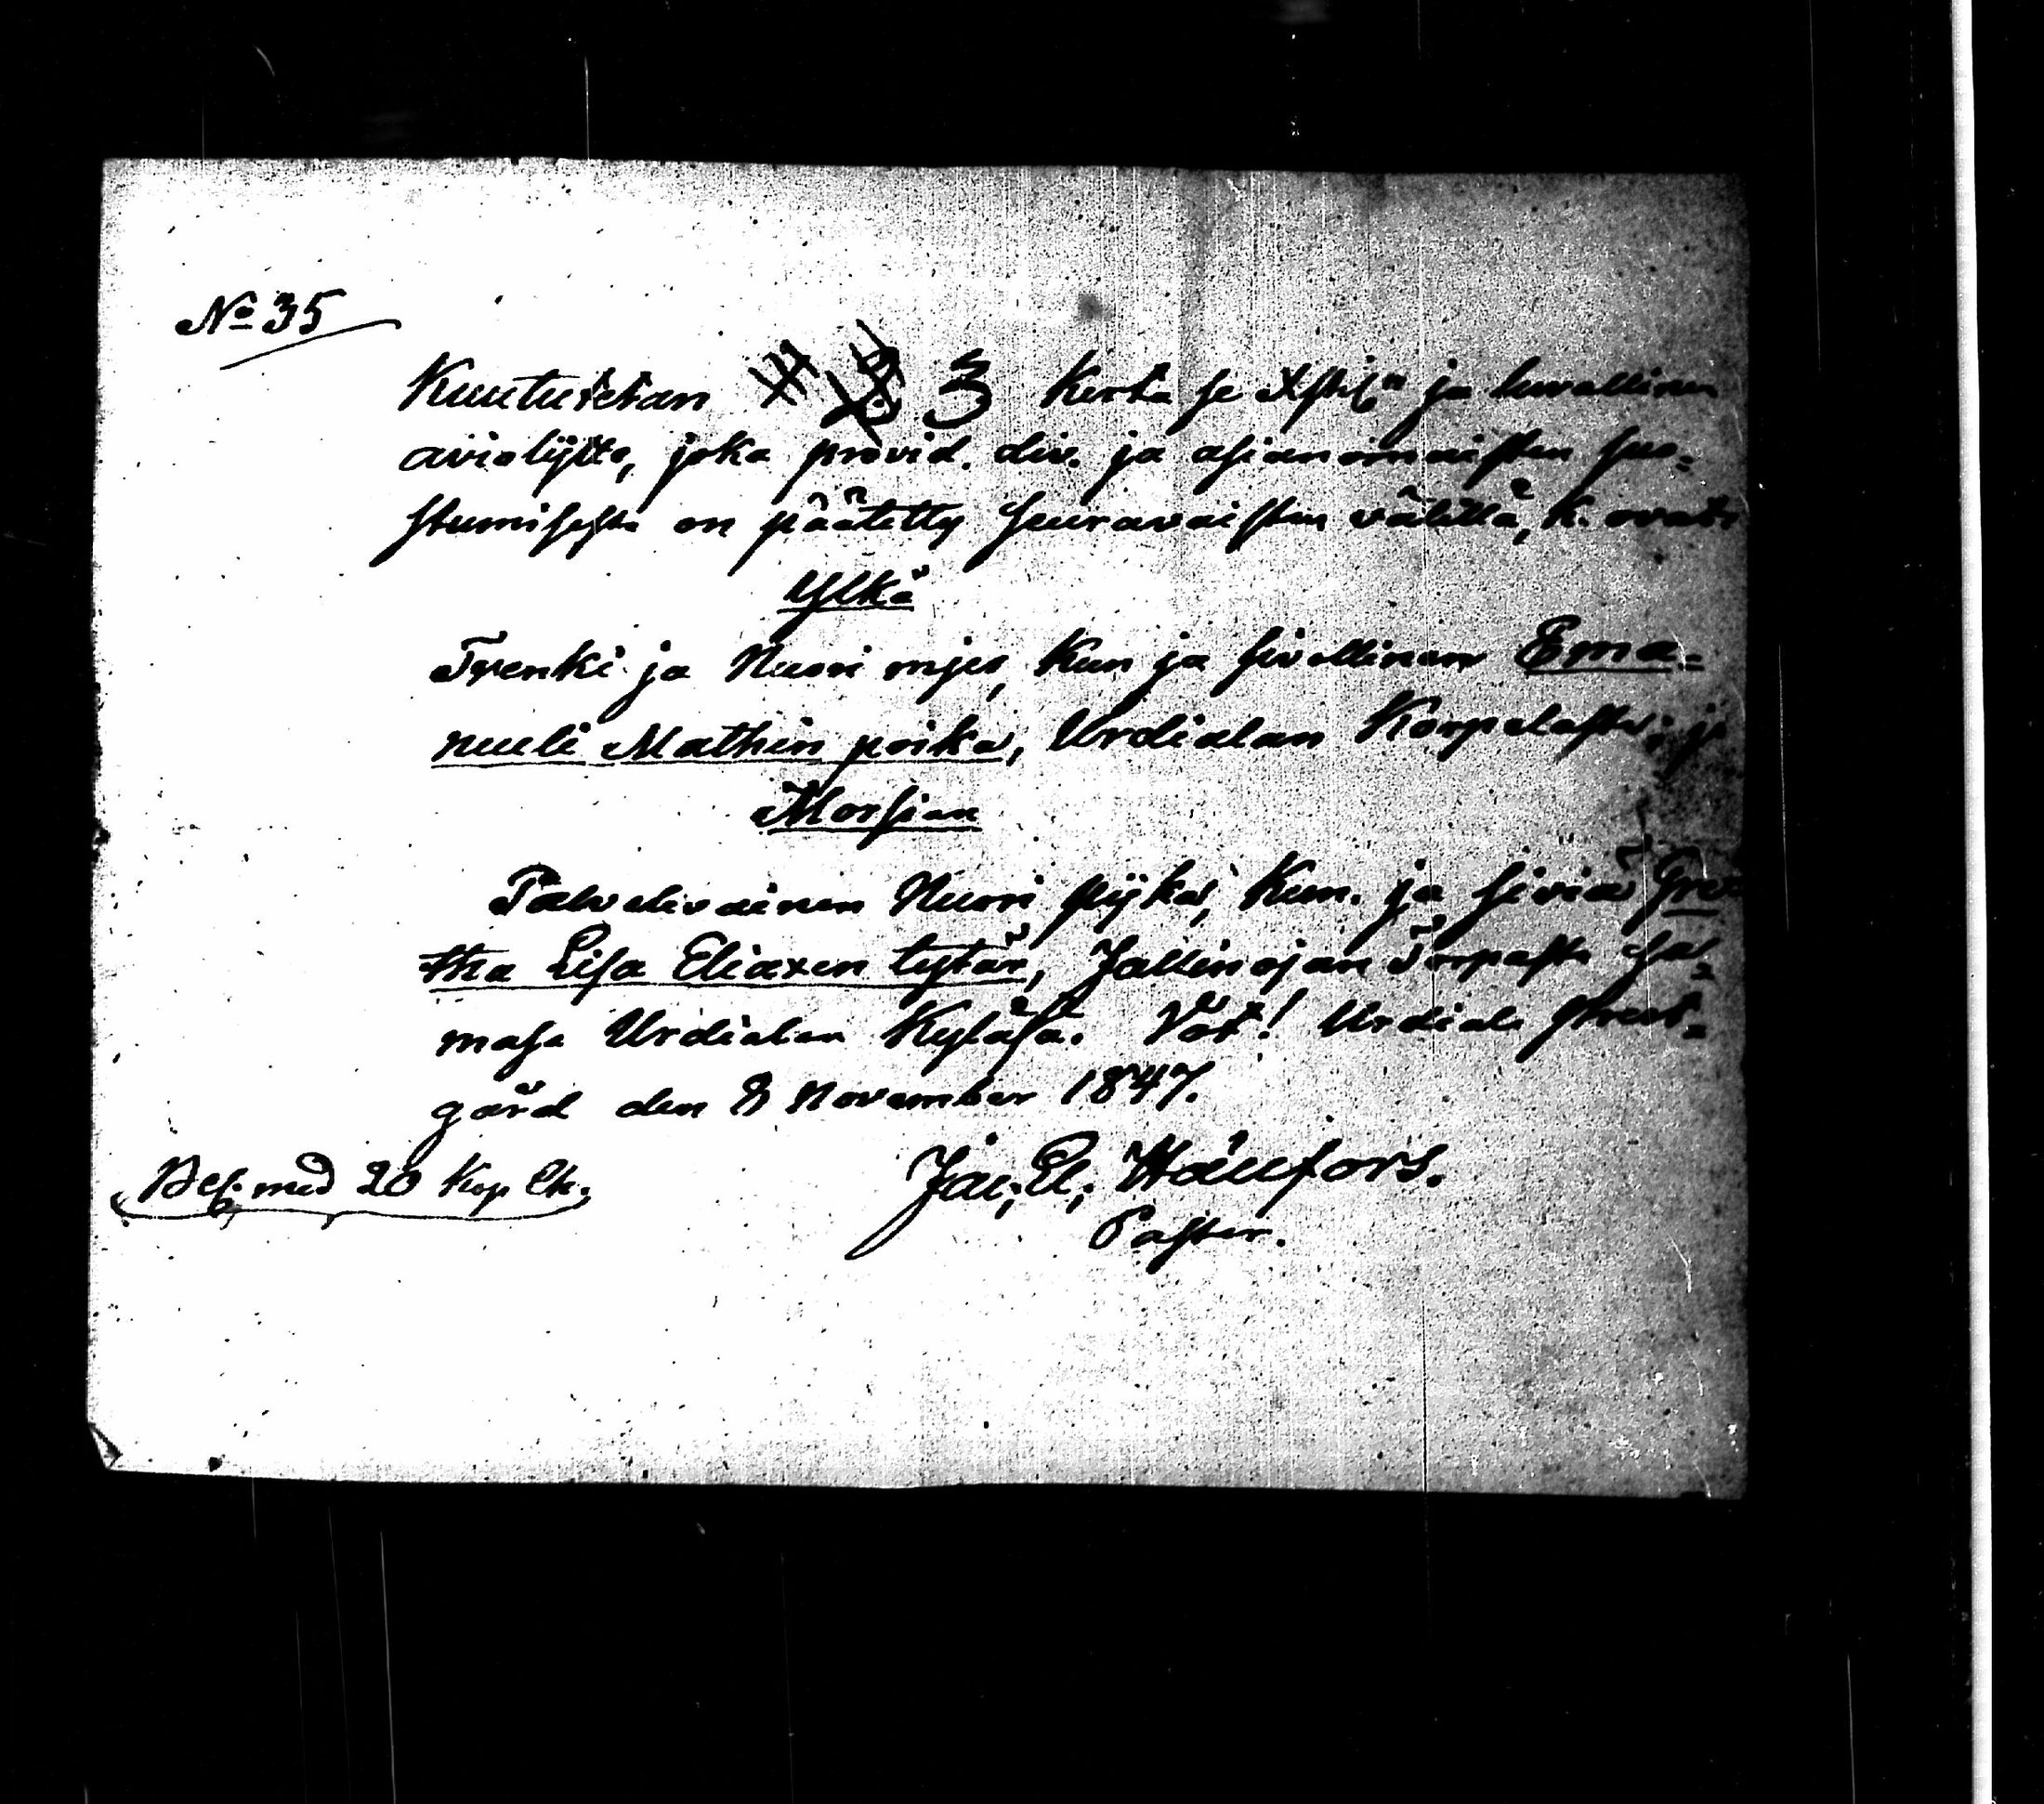 No 35
Kuulutetan 3 Kerta se ja luvallinen
avioliitto, joka provid. div. ja asianomaisten suo-
stumisesta on päätetty seuravaisten välillä, k. ovat:
Ylkä
Trenki ja Nuori mies, Kun ja sivollinen Ema-
nueli Mathin poika, Urdialan Korpelasta; ja
Morsian
Palvelivainen Nuori piika, Kun. ja siviä Gre-
tha Lisa Eliaxen tytär, Jallinojan Torpasta sa-
masa Urdialan Kyläsä. Urdiala Prest-
gård den 8 November 1847.
Bef. med 20 Kop.
Jac. El. Hällfors.
Pastor.